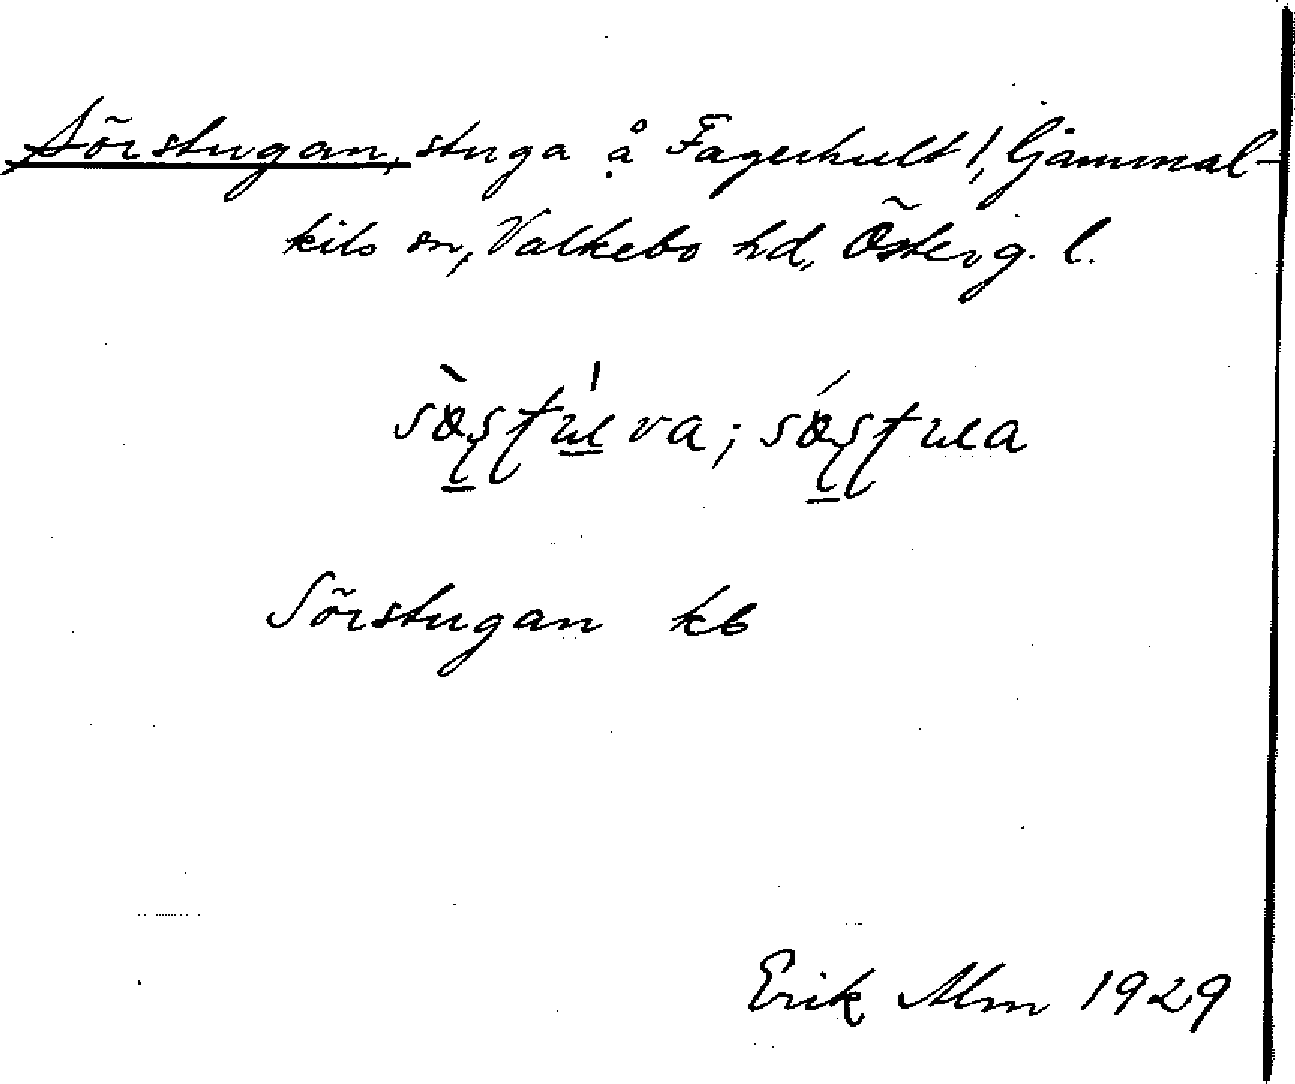 Sörstugan, stuga å Fagerhult !, Gammal-
kils sn, Valkebo hd, Österg. l.
Sörstugan kb
Erik Alm 1929